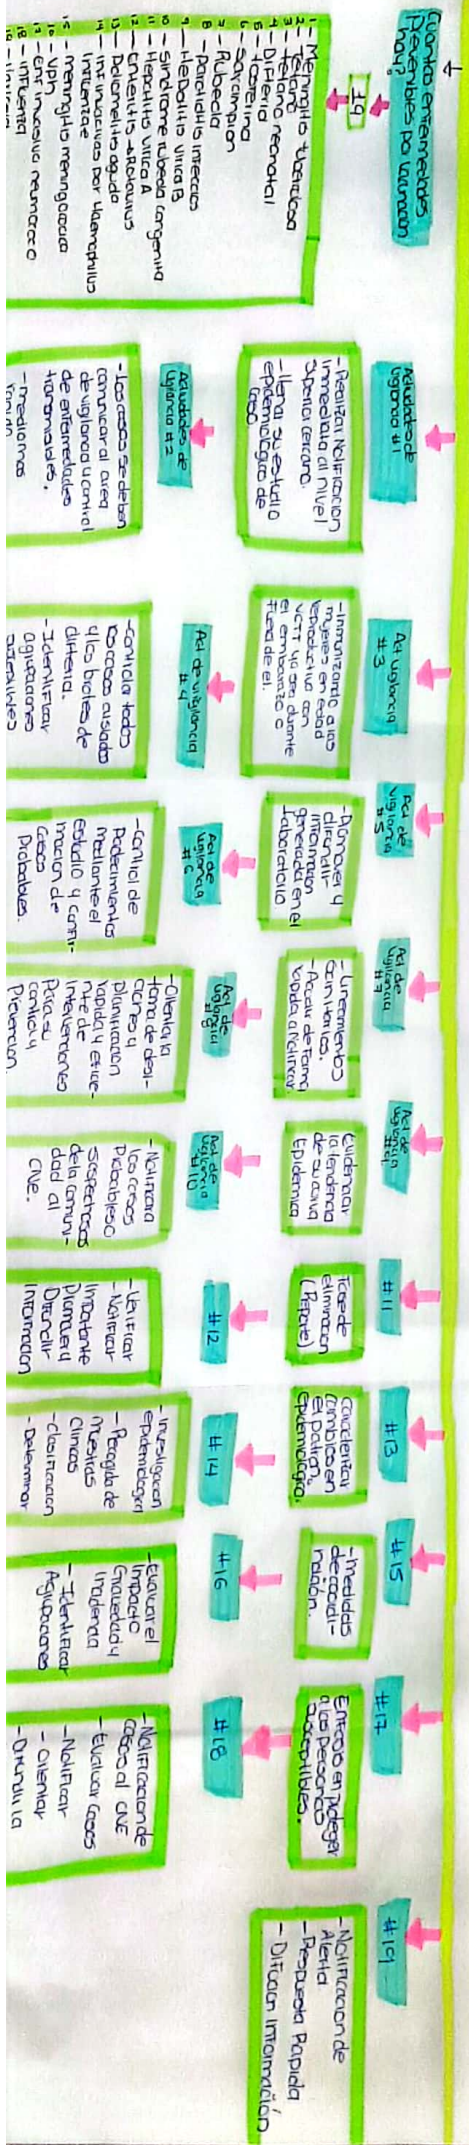 Cuantas enfermedades
prevenibles por vacunacion
hay?
19
1 - Meningitis tuberculosa
2 - Tetano
3 - Tetano neonatal
4 - Difteria
5 - tosferina
6 - Sarampion
7 - Rubeola
8 - Parotiditis infeccios
9 - Hepatitis virica B
10 - Sindrome rubeola congenita
11 - Hepatitis virica A
12 - Enteritis - Rotavirus
13 - Poliomelitis aguda
14 - Inf invacivas por Haemophilus
Influenzae
15 - meningitis meningococica
16 - VPH
17 - Enf invasiva neumococo
18 - influenza
19
Actividades de
vigilancia #1
- Realizar Notificacion
inmediata al nivel
superior cercano.
- Llenar su estudio
epidemiologico de
caso.
Actividades de
vigilancia #2
- Los casos se deben
comunicar al area
de vigilancia y control
de enfermedades
transmisibles.
- mediamos
Act vigilancia
#3
- Inmunizando a las
mujeres en edad
reproductiva con
VATT ya sea durante
el embarazo o
fuera de el.
Act de vigilancia
#4
- Controlar todos
los casos aislados
y los brotes de
difteria.
- Identificar
agrupaciones
Act de
vigilancia
#5
- Promover y
difundir
informacion
generada en el
Laboratorio
Act de
vigilancia
#6
- Control de
Padecimientos
mediante el
estudio y confir-
macion de
casos
Probables.
Act de
Vigilancia
#7
- Lineamientos
Sanitarios.
- Acudir de forma
rapida a Notificar.
Act de
vigilancia
#8
- Orientar la
toma de desi-
ciones y
planificacion
rapida y eficie-
nte de
intervenciones
Para su
control y
Prevencion
Act de
vigilancia
#9
Evidenciar
la tendencia
de su curva
Epidemica
Act de
vigilancia
#10
- Notificara
los casos
Probables o
sospechosos
de la comuni-
dad al
CNE.
#11
Fase de
eliminacion
(Reporte)
#12
- Verificar
- Notificar
Importante
Promover y
Difundir
Informacion
#13
Caracterizar
cambios en
el patron
epidemiologico.
#14
- investigacion
epidemiologica
- Recogida de
muestras
clinicas
- clasificacion
- Determinar
#15
- medidas
de coordi-
nación.
#16
- Evaluar el
Impacto
Gravedad y
Incidencia
- Identificar
Agrupaciones
#17
Enfoco en proteger
a las personas
suceptibles.
#18
- Notificacion de
casos al CNE
- Evaluar Casos
- Notificar
- orientar
- Difundir la
#19
- Notificacion de
Alerta.
- Respuesta Rapida
- Difucion Información